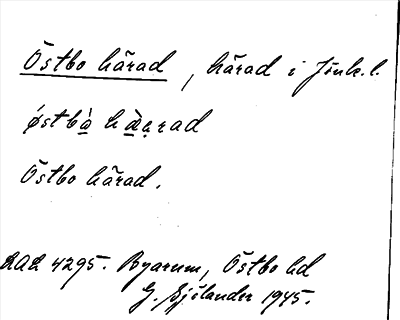 Östbo härad, härad i Jönk. l.
østbà hà̤ạrad
Östbo härad.
DAL 4295. Byarum, Östbo hd
G. Sjölander 1945.